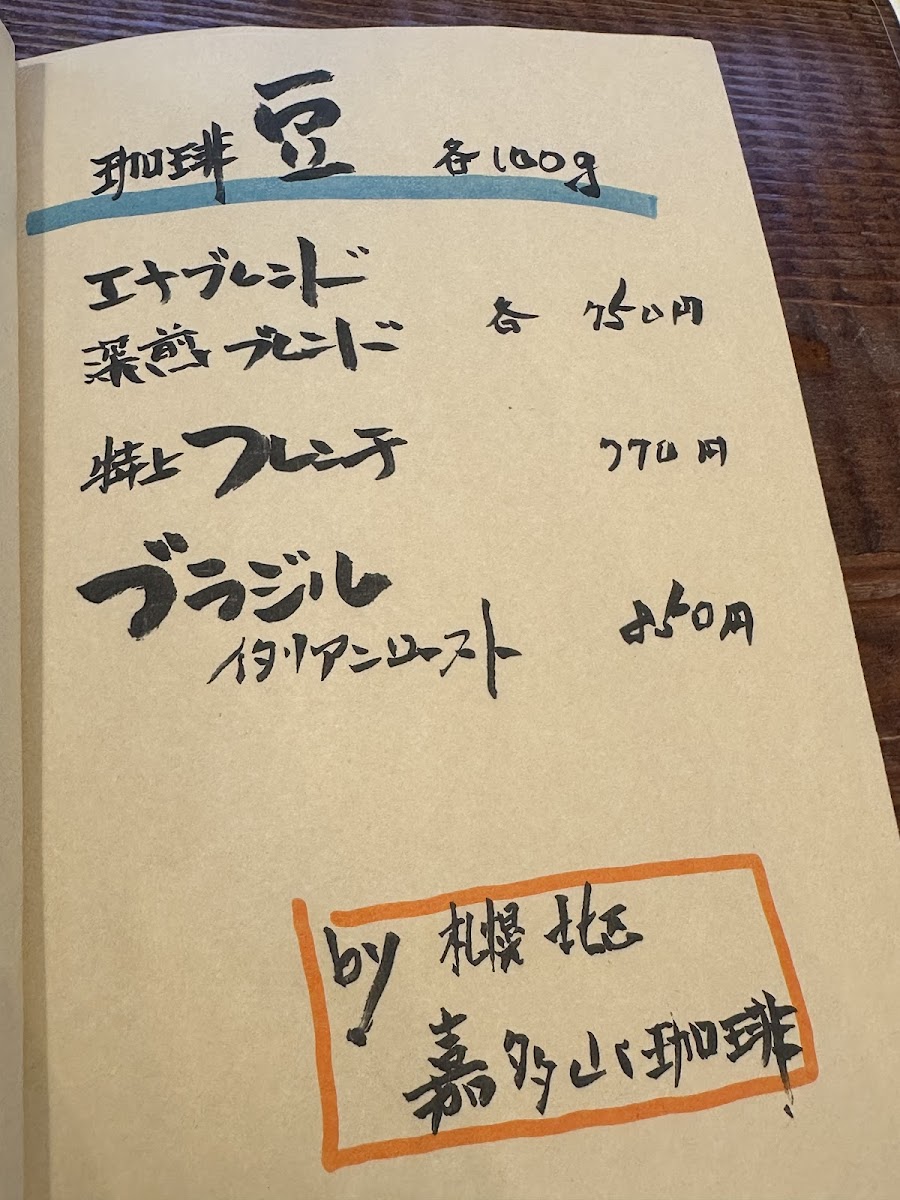 珈琲豆 各100g
エナブレンド
深煎ブレンド 各 750円
特上フレンチ 770円
ブラジル
イタリアンロースト 850円
by 札幌 北区
嘉多山珈琲